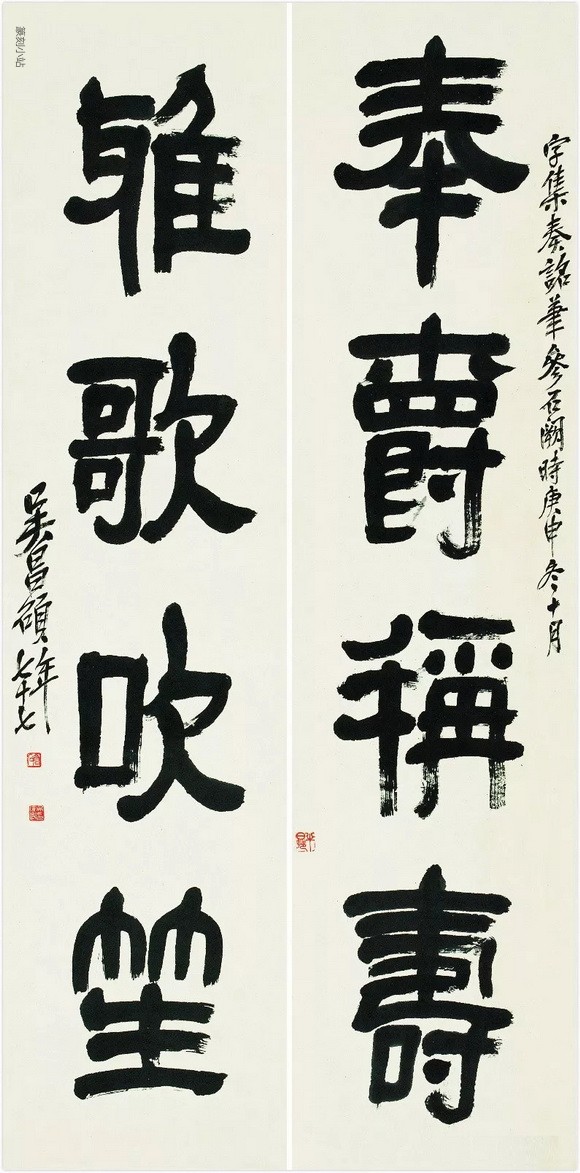 字集秦詔筆參石闕時庚申冬十月
奉爵稱壽
雅歌吹笙
吳昌碩年七十七
篆刻小站